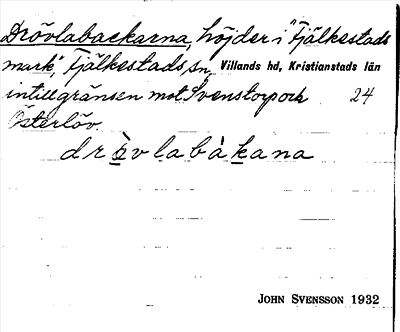 Drövlabackarna, höjder i "Fjälkestads
mark", Fjälkestads sn, Villands hd, Kristianstads län
intill gränsen mot Svenstorp och 24
Österlöv.
drövlabàkana
JOHN SVENSSON 1932